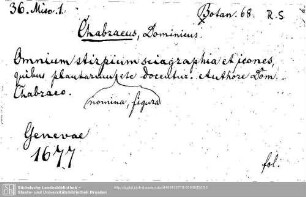 36. Misc. 1.
Botan. 68. R.S
Chabraeus, Dominicus.
Omnium stirpium sciagraphia et icones,
quibus plantarum etc docetur. Authore Dom.
Chabraeo.
nomina, figura
Genevae
1677
fol.
Sächsische Landesbibliothek -
Staats- und Universitätsbibliothek Dresden